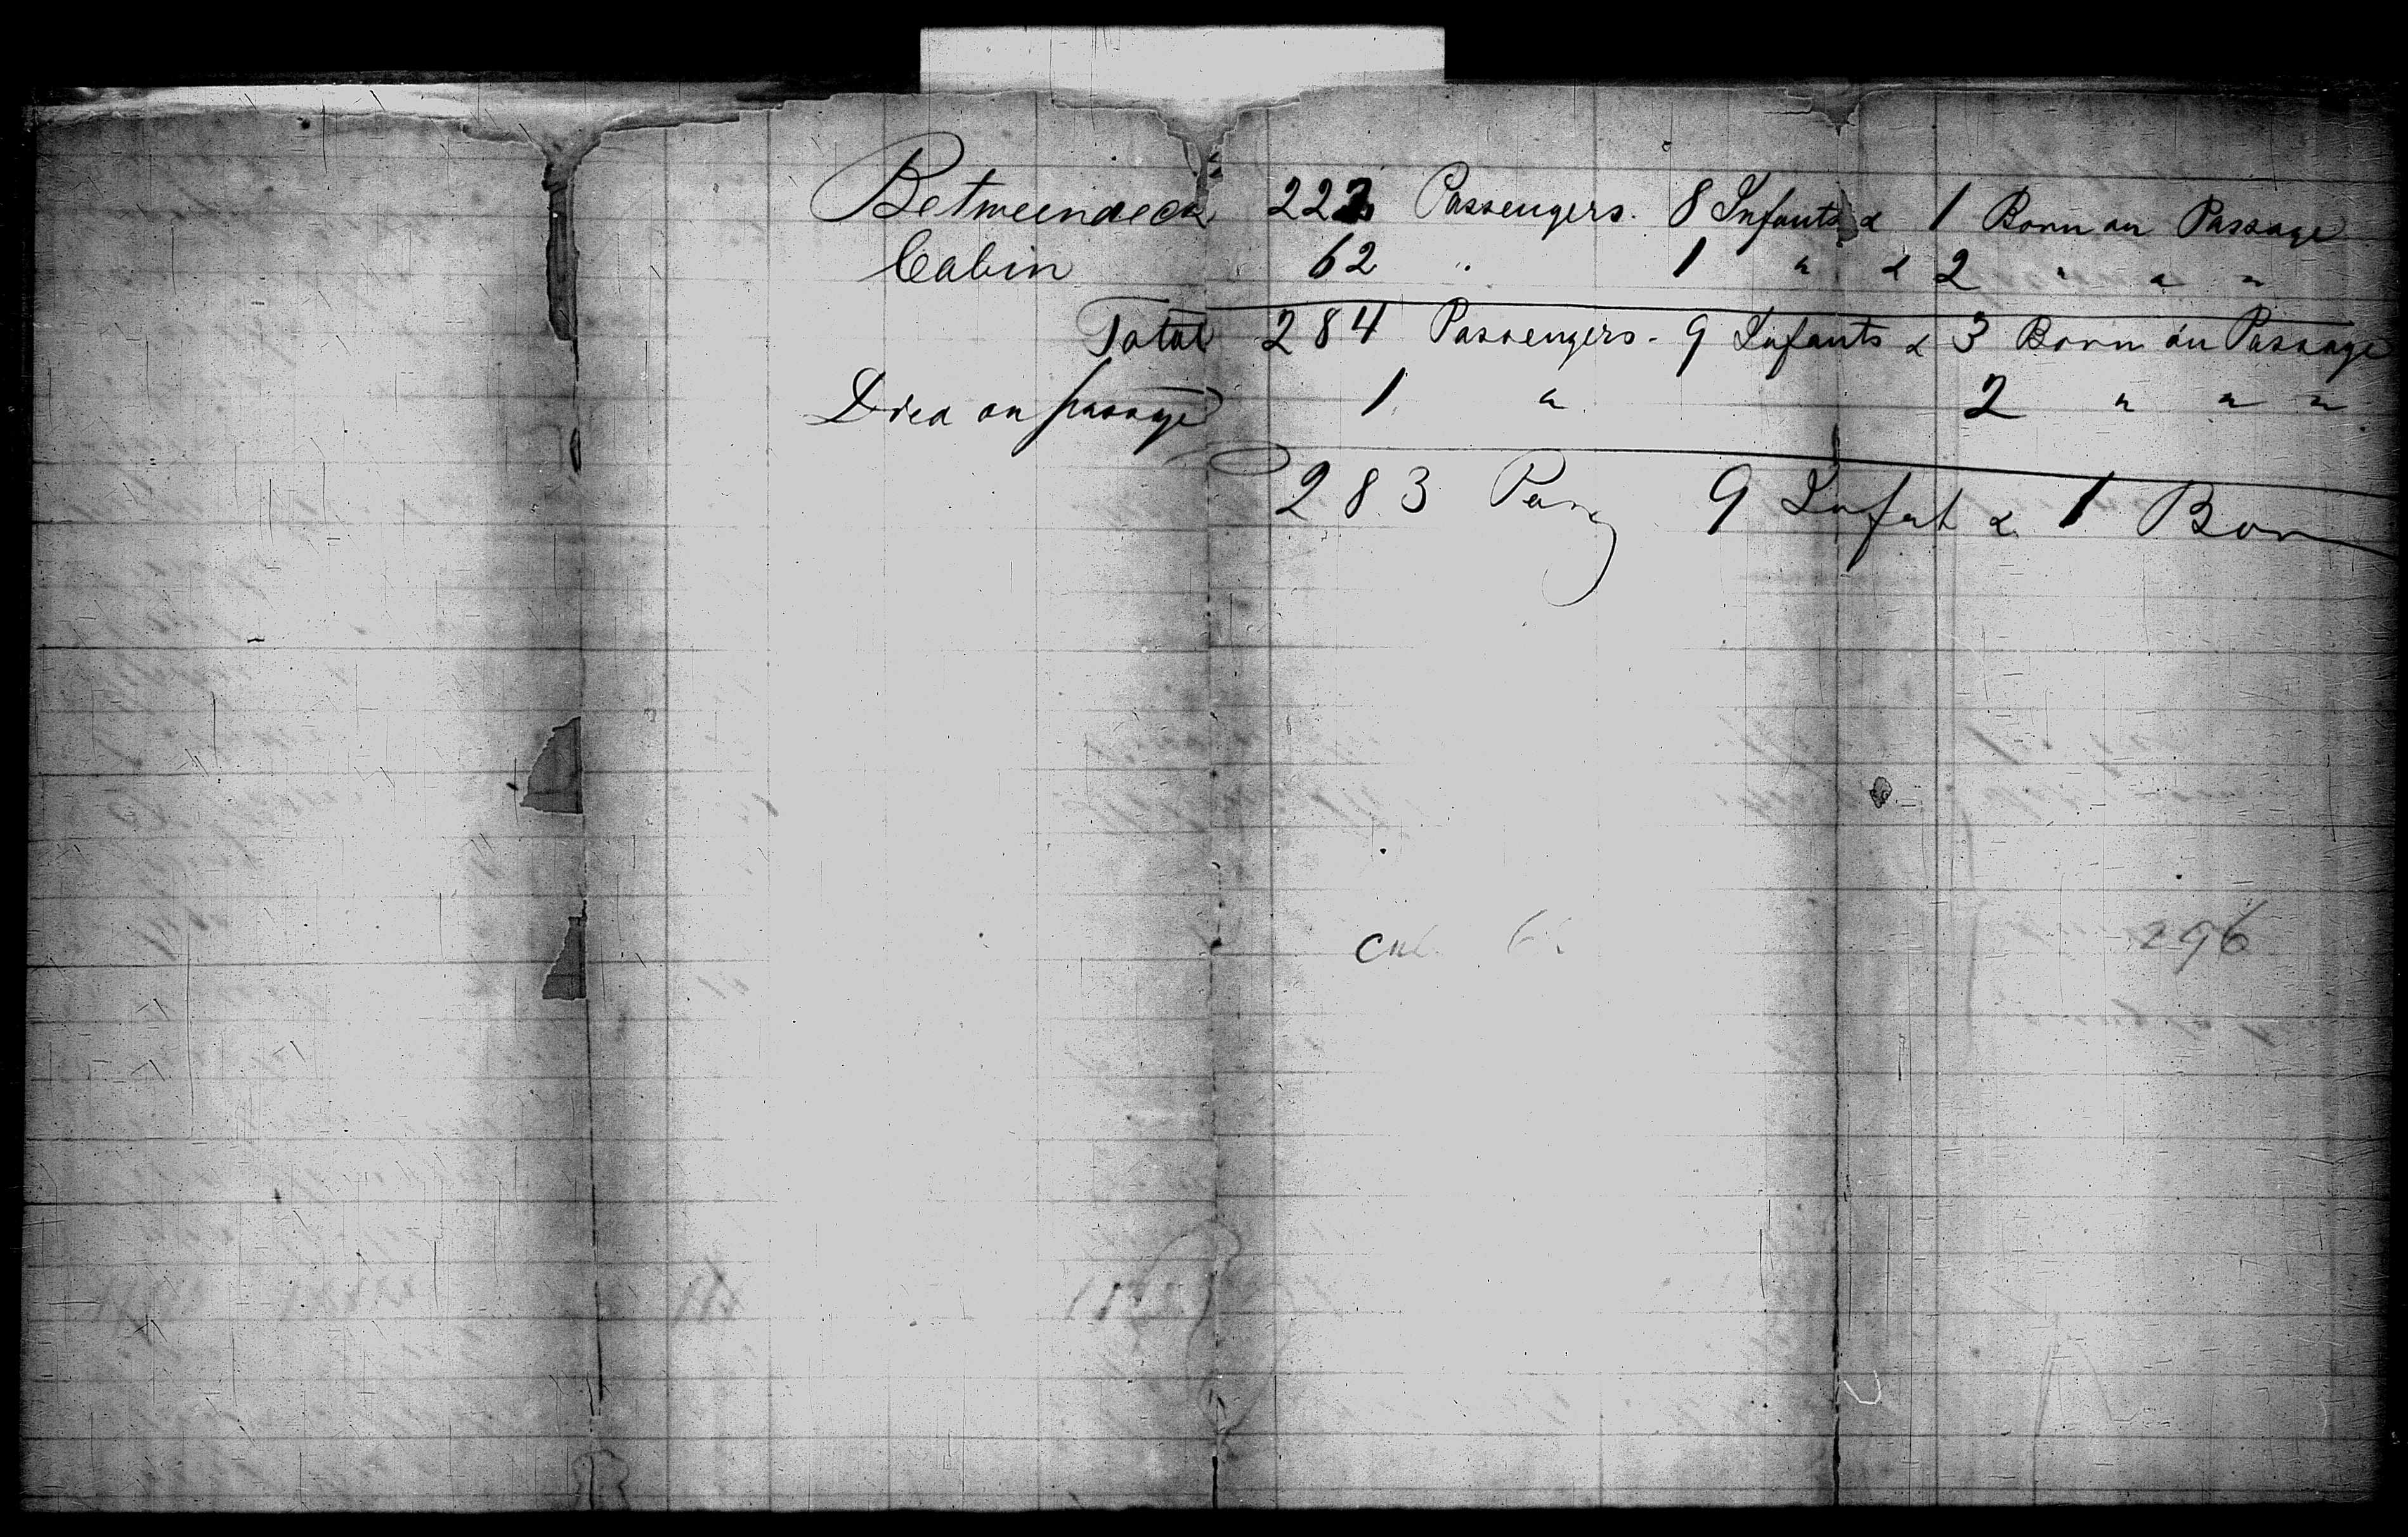 Betweendeck 222 Passengers. 8 Infants & 1 Born on Passage
Cabin 62 " 1 " & 2 " " "
Total 284 Passengers - 9 Infants & 3 Born on Passage
Died on passage 1 " 2 " " "
283 9 Infat & 1 Born
296